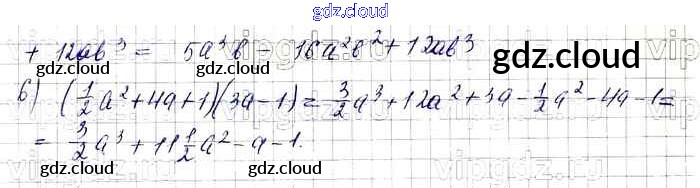 gdz.cloud
+ 12ab³ = 5a³b - 16a²b² + 12ab³
gdz.cloud gdz.cloud gdz.cloud
б) (1/2 a² + 4a + 1)(3a - 1) = 3/2 a³ + 12a² + 3a - 1/2 a² - 4a - 1 =
= 3/2 a³ + 11 1/2 a² - a - 1.
gdz.cloud gdz.cloud gdz.cloud
vipgdz.ru